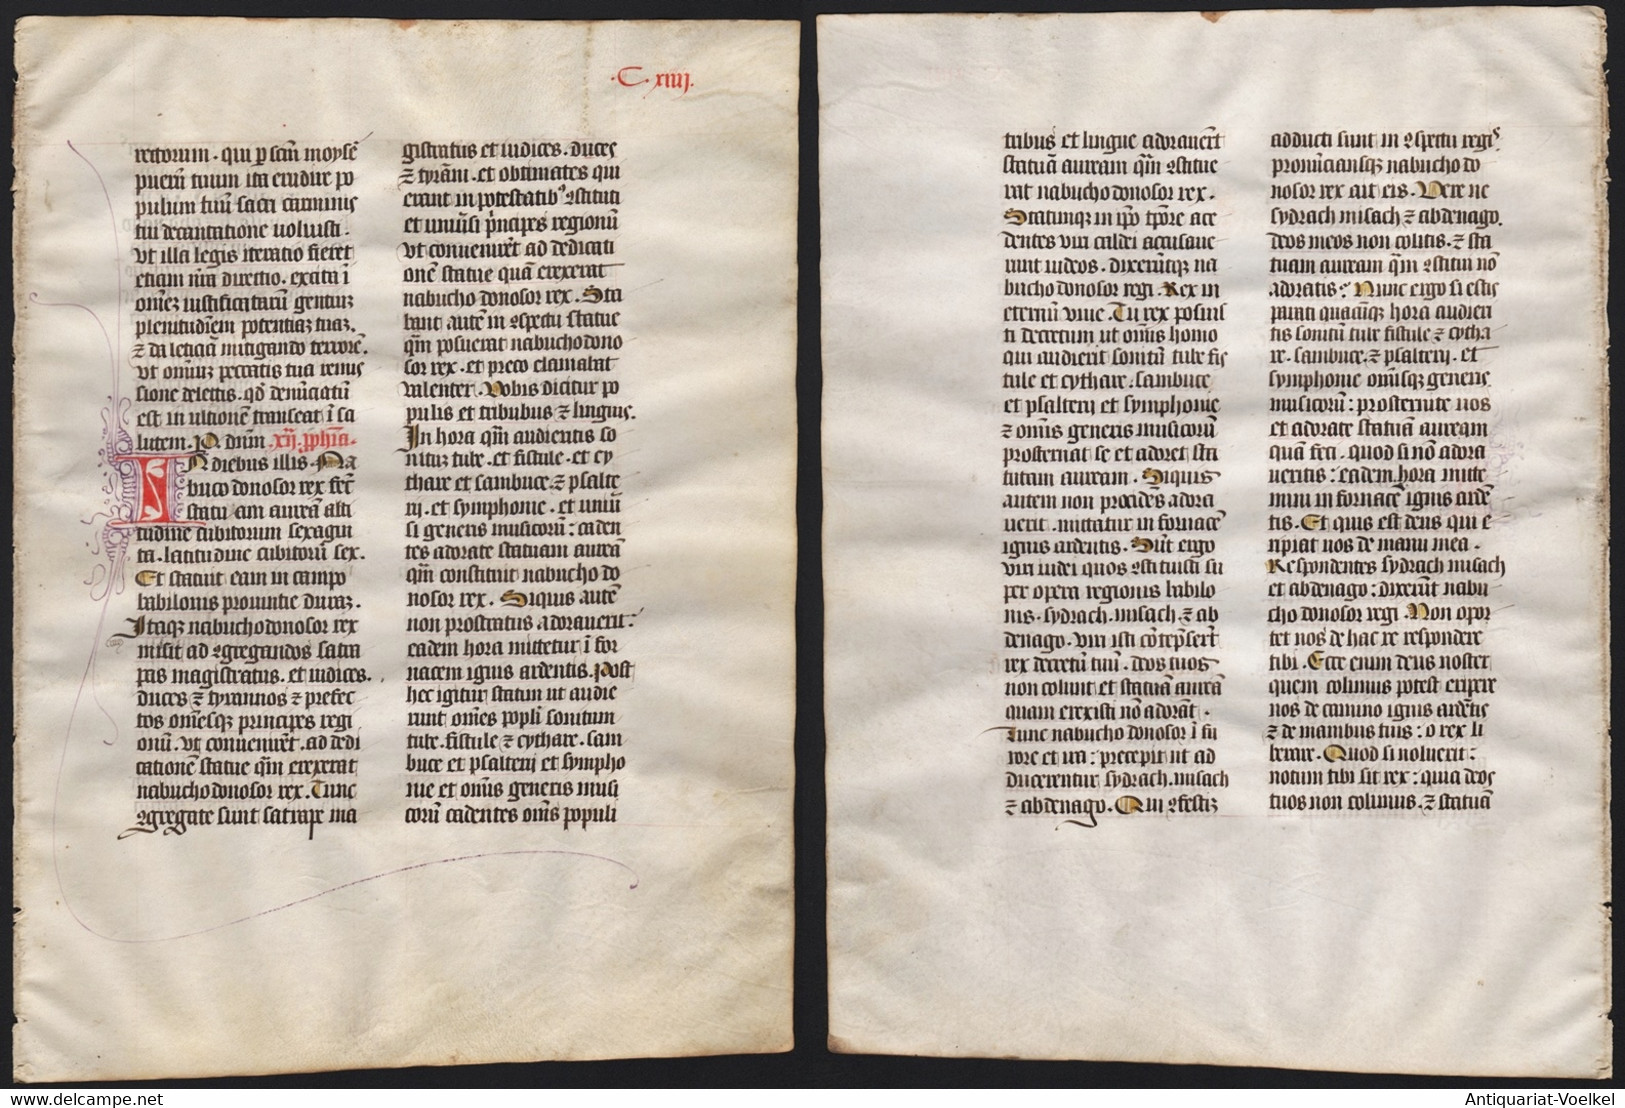 ·C· xiiij.
rectorum· qui p scm̄ moysē
puerū tuum ita erudire po
pulum tuū sacri carminis
tui decantatione uoluisti·
vt illa legis iteratio fieret
etiam nr̄a directio· excita ī
om̄ez iustificatarū gentiuz
plenitudinem potentiaz tuaz·
⁊ da leticiā mitigando terrorē·
vt omniuz peccatis tua remis
sione deletis· qd̄ denūciatū
est in ultionē transeat ī sa
lutem· P dnm̄ xij· pphīa·
IN diebus illis· Na
buco donosor rex fec̄
statu am aureā alti
tudine cubitorum sexagin
ta· latitudine cubitorū sex·
Et statuit eam in campo
babilonis prouintie duraz·
Itaqz nabuchodonosor rex
misit ad ꝯgregandos satra
pas magistratus· et iudices·
duces ⁊ tyrannos ⁊ prefec
tos om̄esqz principes regi
onū· vt conuenirēt· ad dedi
cationē statue qm̄ erexerat
nabuchodonosor rex· Tunc
ꝯgregate sunt satrape ma
gistratus et iudices· duces
⁊ tyrāni· et obtimates qui
erant in potestatibꝰ ꝯstituti
et uniūsi pncipes regionū
vt conuenirēt ad dedicati
onē statue quā erexerat
nabucho donosor rex· Sta
bant autē in ꝯspectu statue
qm̄ posuerat nabucho dono
sor rex· et preco clamabat
valenter· Vobis dicitur po
pulis et tribubus ⁊ linguis·
In hora qm̄ audieritis so
nituz tube· et fistule· et cy
thare et sambuce· ⁊ psalte
rij· et symphonie· et uniū
si generis musicorū: caden
tes adorate statuam aureā
qm̄ constituit nabucho do
nosor rex· Siquis autē
non prostratus adorauerit:
eadem hora mittetur ī for
nacem ignis ardentis· Post
hec igitur statim ut audie
runt om̄es popli sonitum
tube· fistule ⁊ cythare· sam
buce et psalterij et sympho
nie et om̄is generis musi
corū cadentes om̄s populi
tribus et lingue adorauerūt
statuā auream qm̄ ꝯstitue
rat nabucho donosor rex·
Statimqz in ipo tpore acce
dentes viri caldei accusaue
runt iudeos· dixerūtqz na
bucho donosor regi· Rex in
eternū viue· Tu rex posuis
ti decretum ut om̄is homo
qui audierit sonitū tube fis
tule et cythare· sambuce
et psalterij et symphonie
⁊ om̄is generis musicorū
prosternat se et adoret sta
tutam auream· Siquis
autem non procidēs adora
uerit· mittatur in fornacē
ignis ardentis· Sūt ergo
viri iudei quos ꝯstituisti su
per opera regionis babilo
nis· sydrach· misach· ⁊ ab
denago· viri isti cōtepserūt
rex decretū tuū· deos tuos
non colunt et statuā aureā
quam erexisti nō adorāt·
Tunc nabucho donosor ī fu
rore et ira: precepit ut ad
ducerentur sydrach· misach
⁊ abdenago· Qui ꝯfestiz
adducti sunt in ꝯspectu regis·
pronūciansqz nabucho do
nosor rex ait eis· Vere ne
sydrach misach ⁊ abdenago·
deos meos non colitis· ⁊ sta
tuam auream qm̄ ꝯstitui nō
adoratis? Nunc ergo si estis
parati quacūqz hora audieri
tis sonitū tube fistule ⁊ cytha
re· sambuce· ⁊ psalterij· et
symphonie om̄isqz generis
musicorū: prosternite uos
et adorate statuā auream
quā feci· quod si nō adora
ueritis: eadem hora mitte
mini in fornacē ignis ardē
tis· Et quis est deus qui e
ripiat uos de manu mea·
Respondentes sydrach misach
et abdenago: dixerūt nabu
cho donosor regi· Non opor
tet nos de hac re respondere
tibi· Ecce enim deus noster
quem colimus potest eripere
nos de camino ignis ardētis
⁊ de manibus tuis: o rex li
berare· Quod si noluerit:
notum tibi sit rex: quia deos
tuos non colimus· ⁊ statuā
www.delcampe.net
Antiquariat-Voelkel